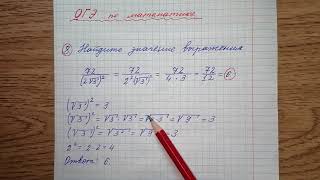 ОГЭ по математике
⑧ Найдите значение выражения
72/(2√3)² = 72/(2²·(√3)²) = 72/(4·3) = 72/12 = 6
(√3)² = 3
(√3)² = √3 · √3 = √3·3 = √9 = 3
(√3)² = √3² = √9 = 3
2² = 2·2 = 4
Ответ: 6.